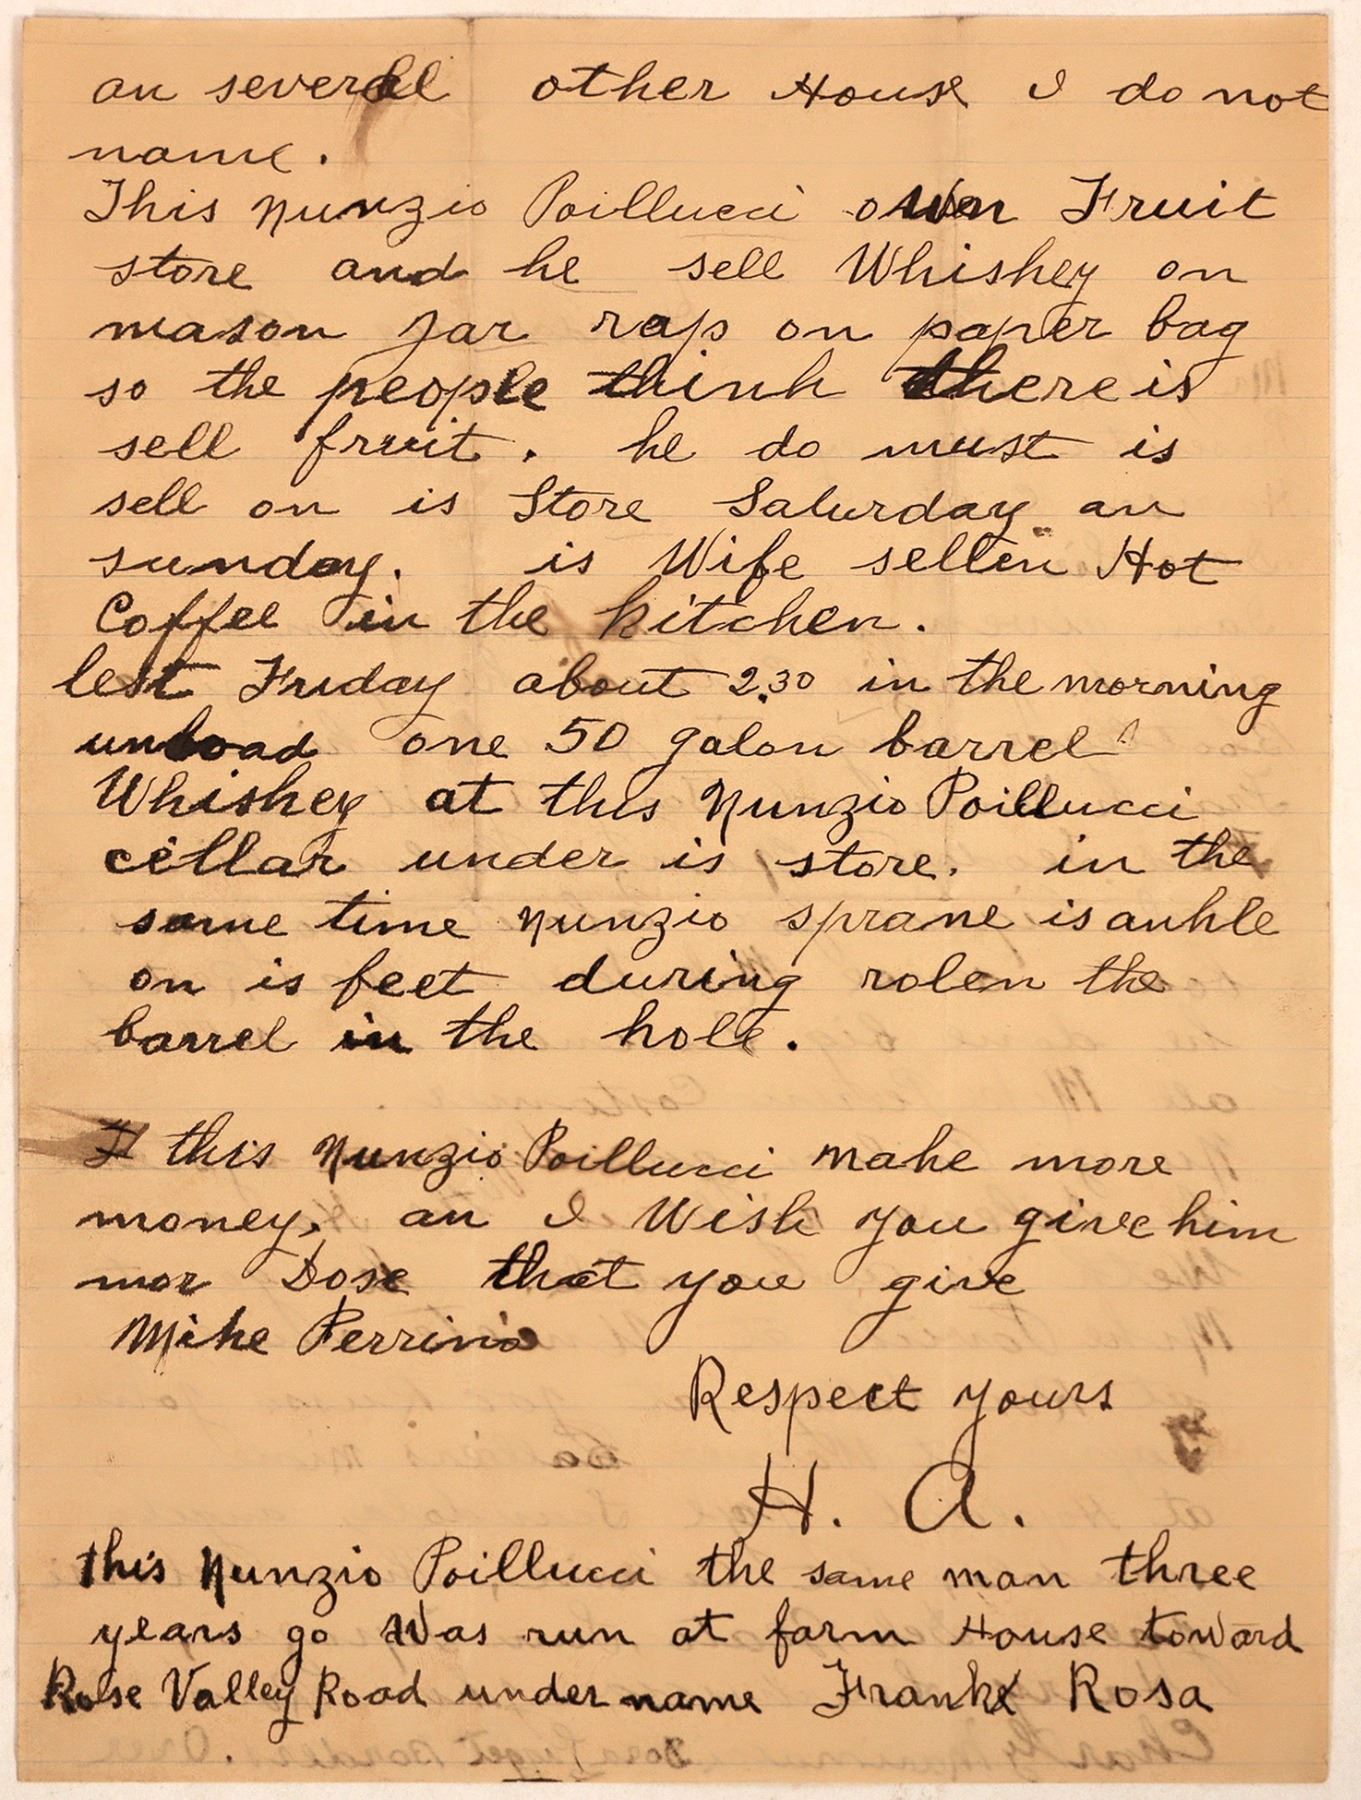 an severall other House I do not
name.
This Nunzio Poillucci own Fruit
store and he sell Whiskey on
mason Jar rap on paper bag
so the people think there is
sell fruit. he do must is
sell on is Store Saturday an
sunday. is Wife sellen Hot
Coffee in the kitchen.
lest Friday about 2.30 in the morning
unload one 50 galon barrel
Whiskey at this Nunzio Poillucci
cellar under is store. in the
same time Nunzio sprane is ankle
on is feet during rolen the
barrel in the hole.
this Nunzio Poillucci make more
money, an I Wish you give him
mor Dose that you give
Mike Perrino
Respect yours
H. A.
this Nunzio Poillucci the same man three
years go Was run at farm House toward
Rose Valley Road under name Frank Rosa